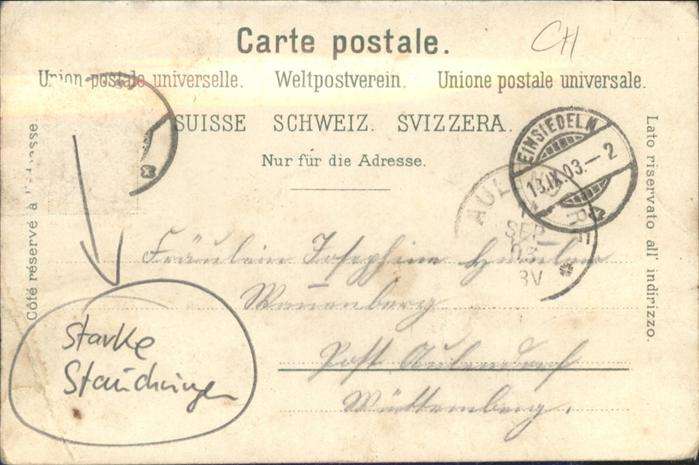 Carte postale.
CH
Union postale universelle. Weltpostverein. Unione postale universale.
SUISSE SCHWEIZ. SVIZZERA.
Nur für die Adresse.
Côté réservé à l'adresse
Lato riservato all' indirizzo.
EINSIEDELN
13.IX.03.–2
AULEN
SEP
3V
Fräulein Josephine
Post Aulendorf
Württemberg.
Starke
Stauchungen